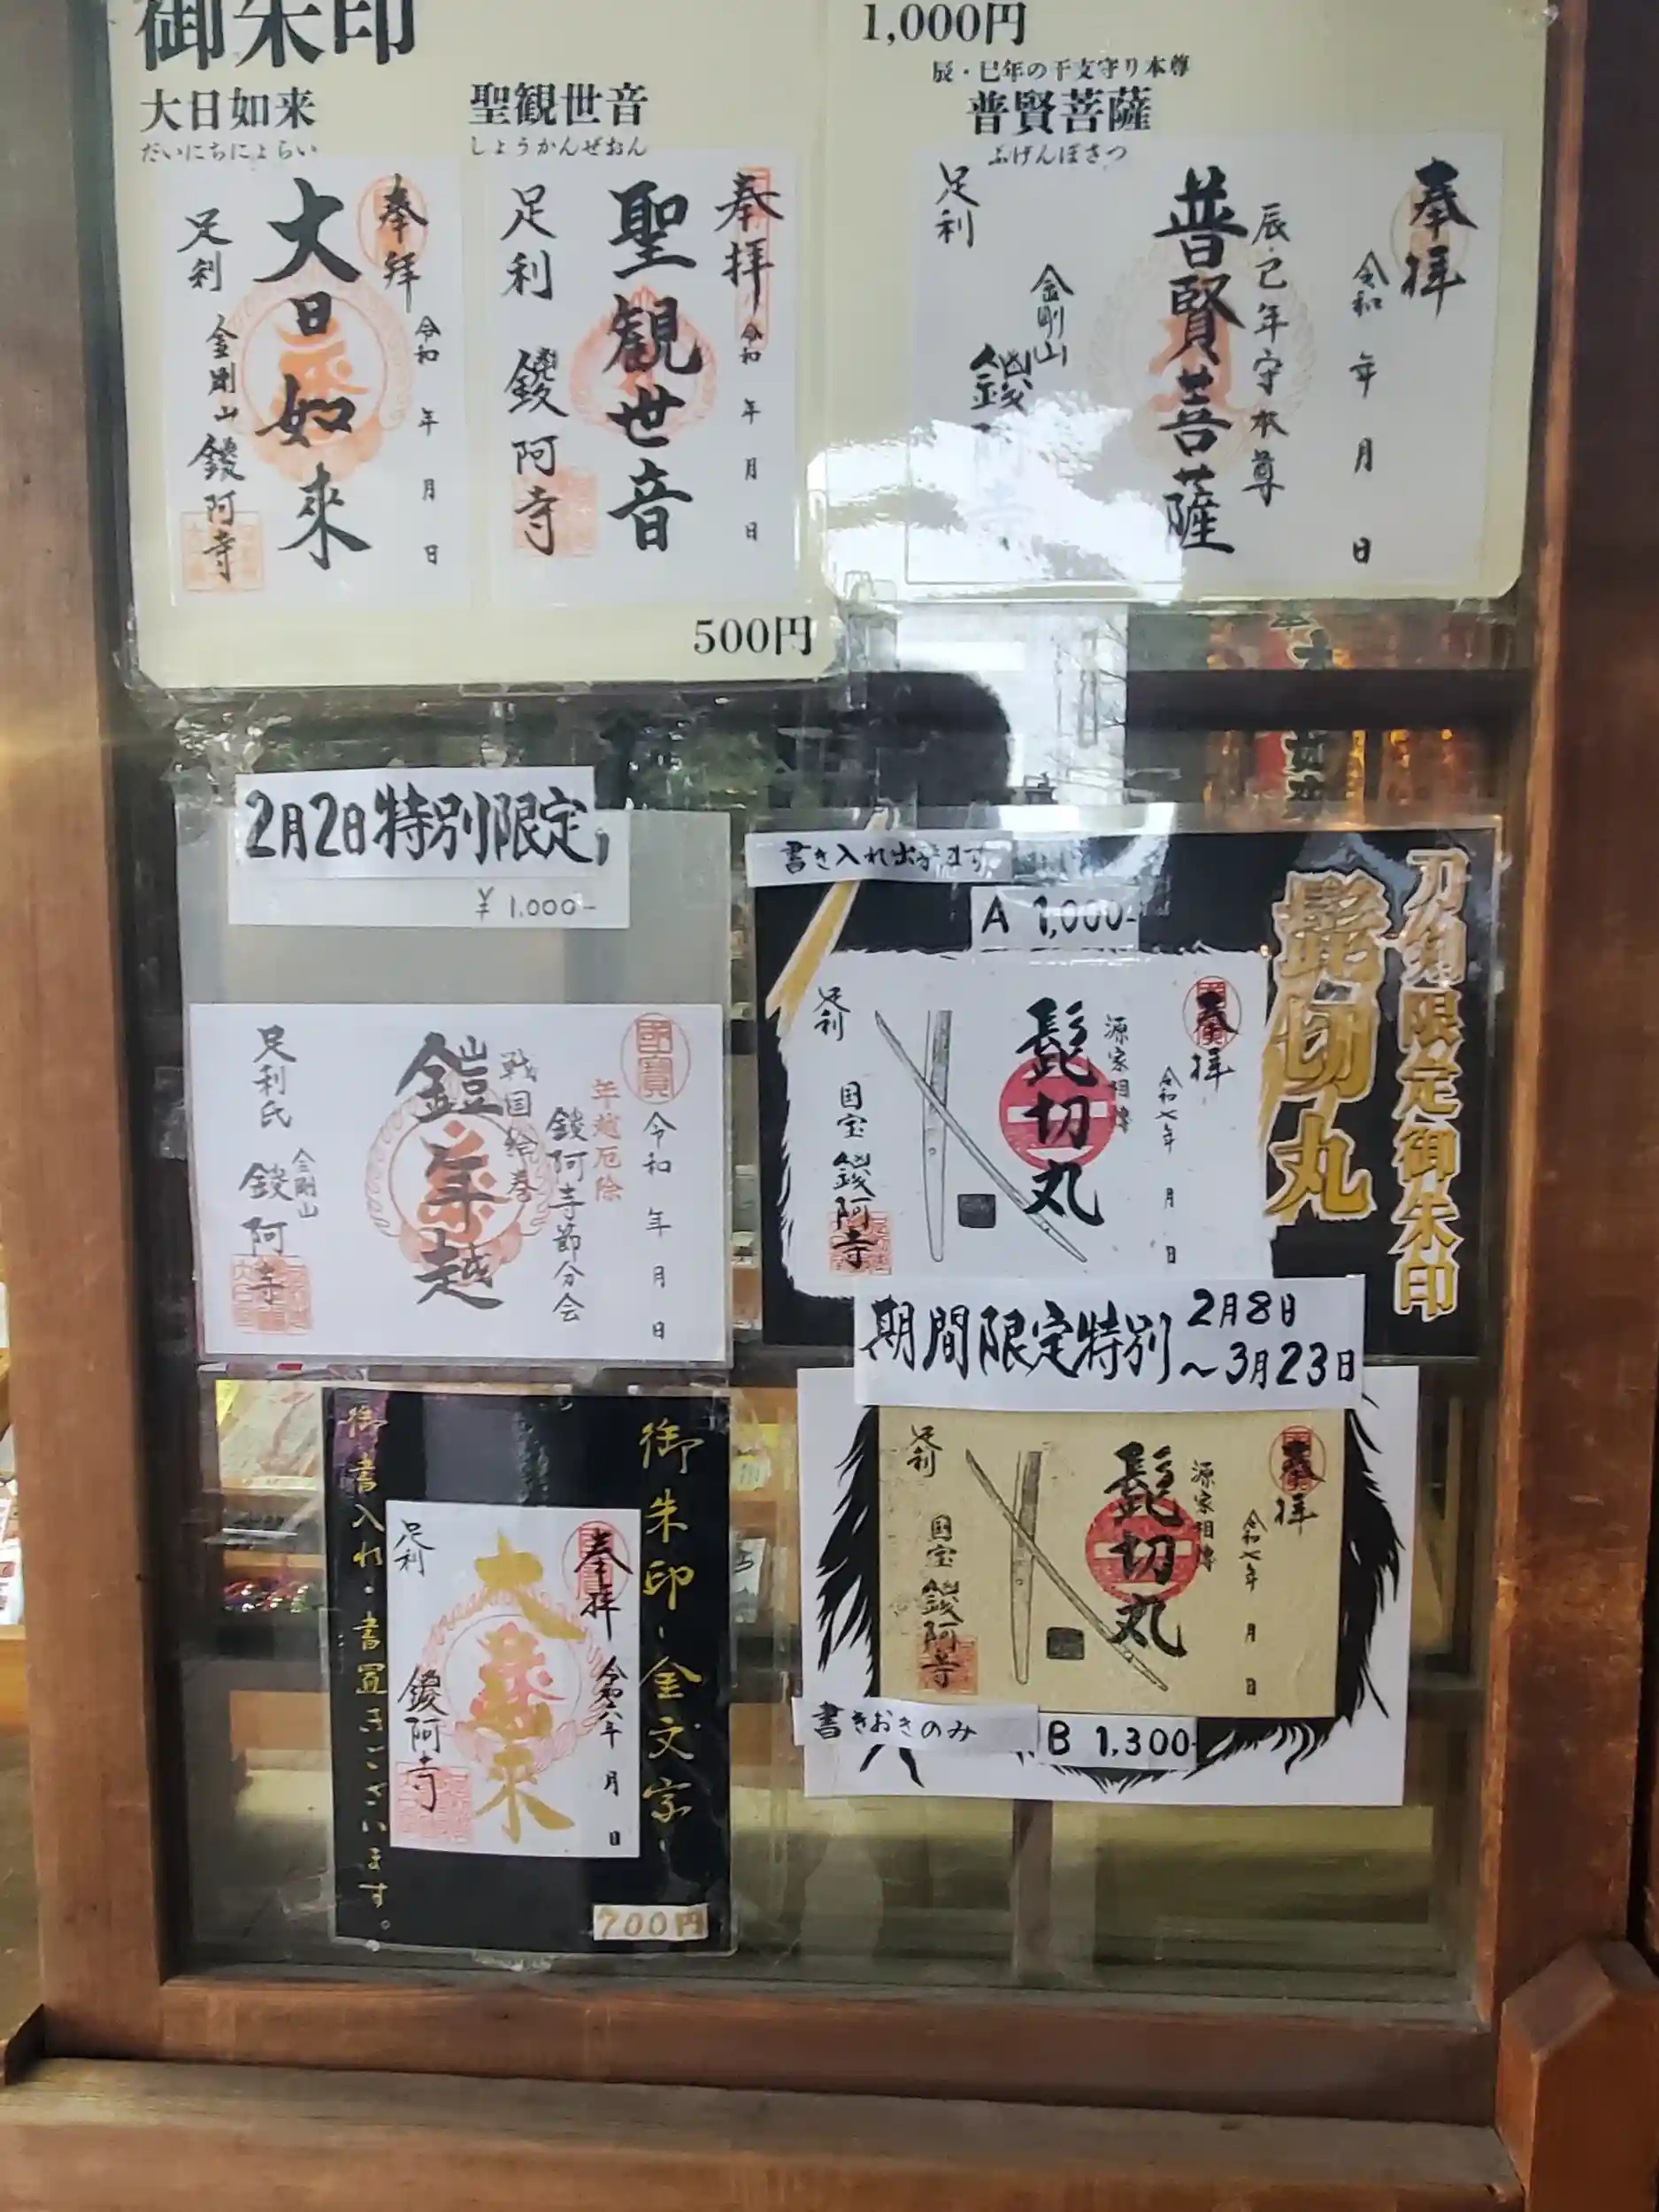 御朱印
大日如来
だいにちにょらい
聖観世音
しょうかんぜおん
奉拝
大日如来
令和 年 月 日
足利
金剛山 鑁阿寺
奉拝
聖観世音
令和 年 月 日
足利 鑁阿寺
500円
1,000円
辰・巳年の干支守り本尊
普賢菩薩
ふげんぼさつ
奉拝
令和 年 月 日
辰・巳年守本尊
普賢菩薩
足利
金剛山
2月2日特別限定
¥1,000-
國寳
令和 年 月 日
年越厄除
鑁阿寺節分会
戦国絵巻
鎧年越
足利氏
金剛山
鑁阿寺
書き入れ出来ます
A 1,000-
刀剣限定御朱印
髭切丸
奉拝
令和七年 月 日
源家相傳
髭切丸
足利
国宝 鑁阿寺
期間限定特別 2月8日
~3月23日
奉拝
令和七年 月 日
源家相傳
髭切丸
足利
国宝 鑁阿寺
書きおきのみ
B 1,300-
御朱印-金文字-
奉拝
令和六年 月 日
大日如来
足利
鑁阿寺
御書入れ・書置きございます。
700円